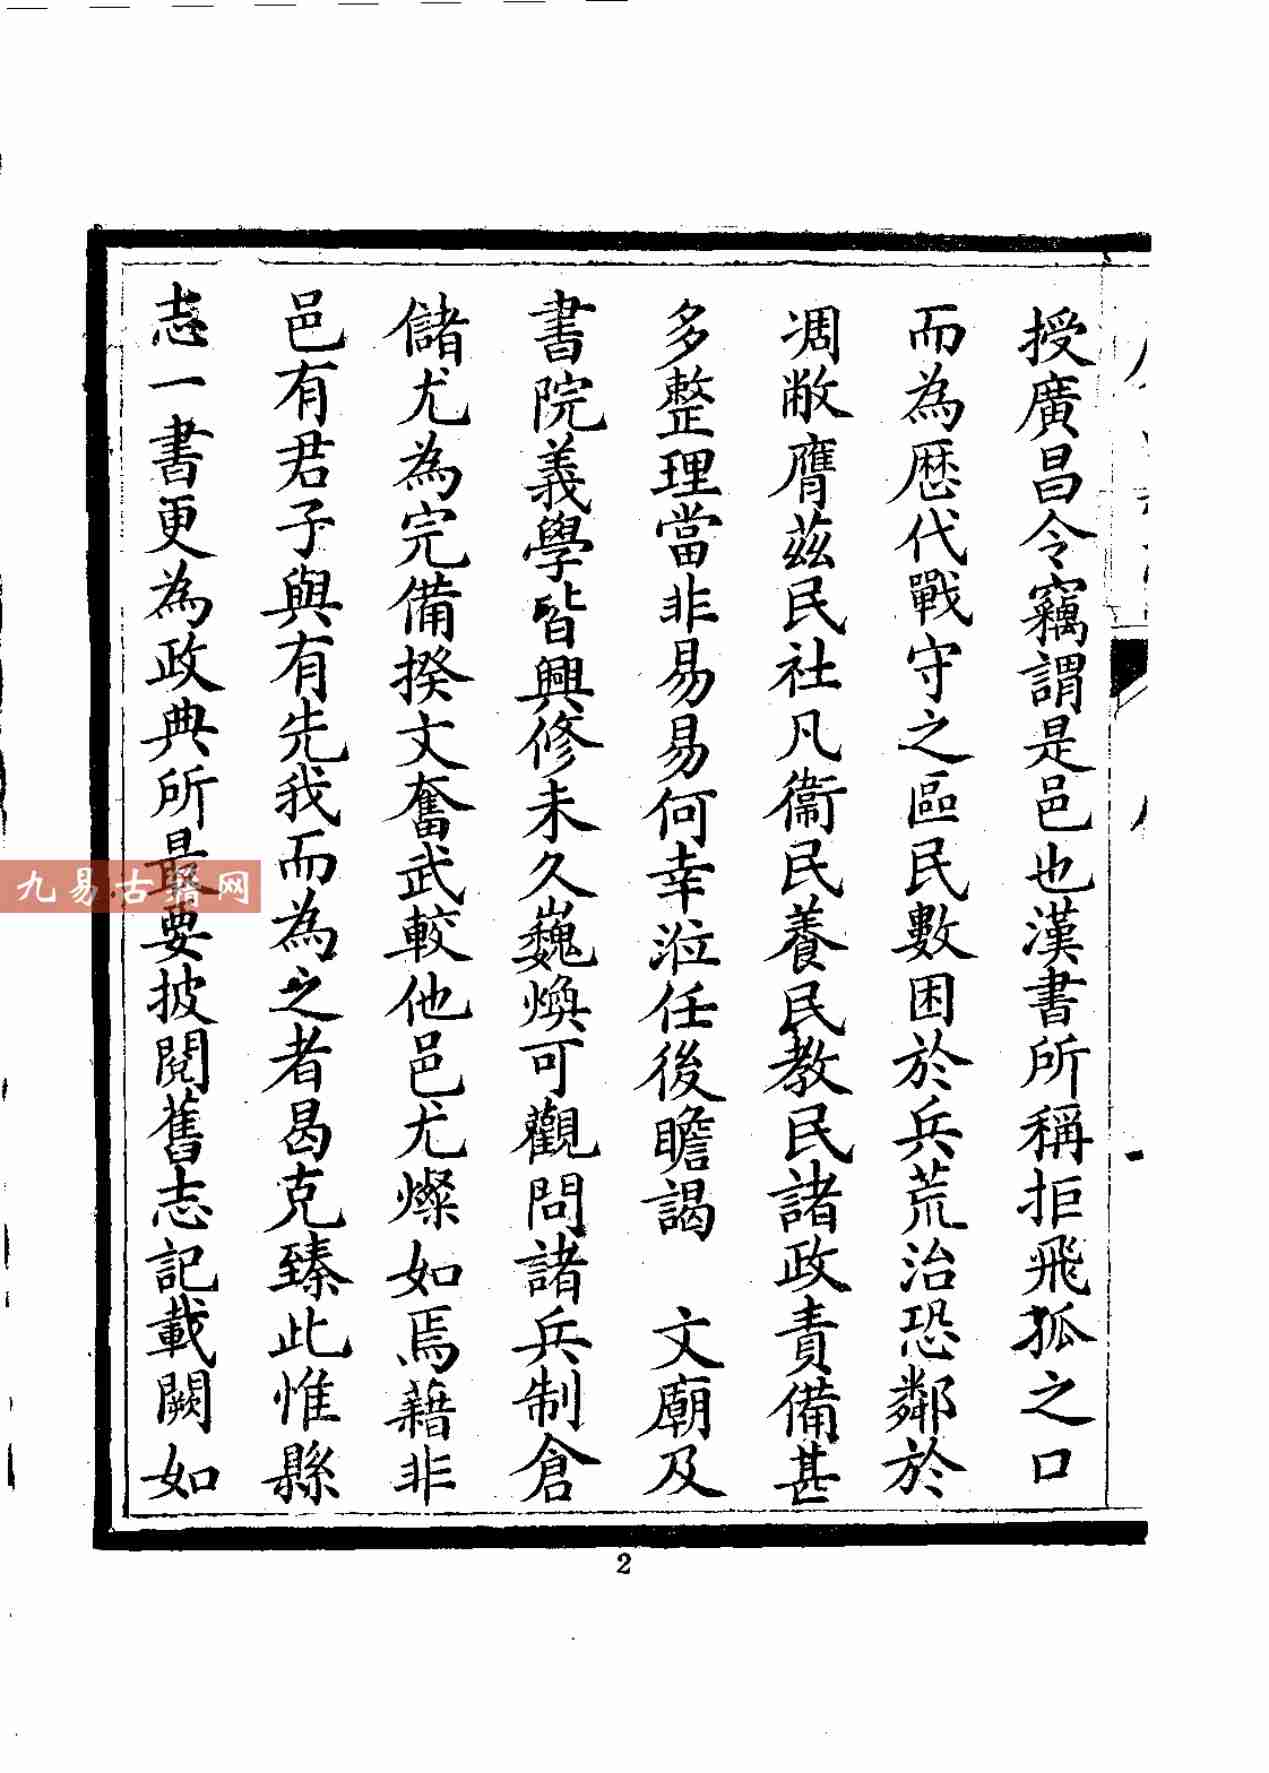 授廣昌令竊謂是邑也漢書所稱拒飛狐之口
而為歷代戰守之區民數困於兵荒治恐鄰於
凋敝膺茲民社凡衞民養民教民諸政責備甚
多整理當非易易何幸涖任後瞻謁　文廟及
書院義學皆興修未久巍煥可觀問諸兵制倉
儲尤為完備揆文奮武較他邑尤燦如焉藉非
邑有君子與有先我而為之者曷克臻此惟縣
志一書更為政典所最要披閱舊志記載闕如
九易古籍网
2